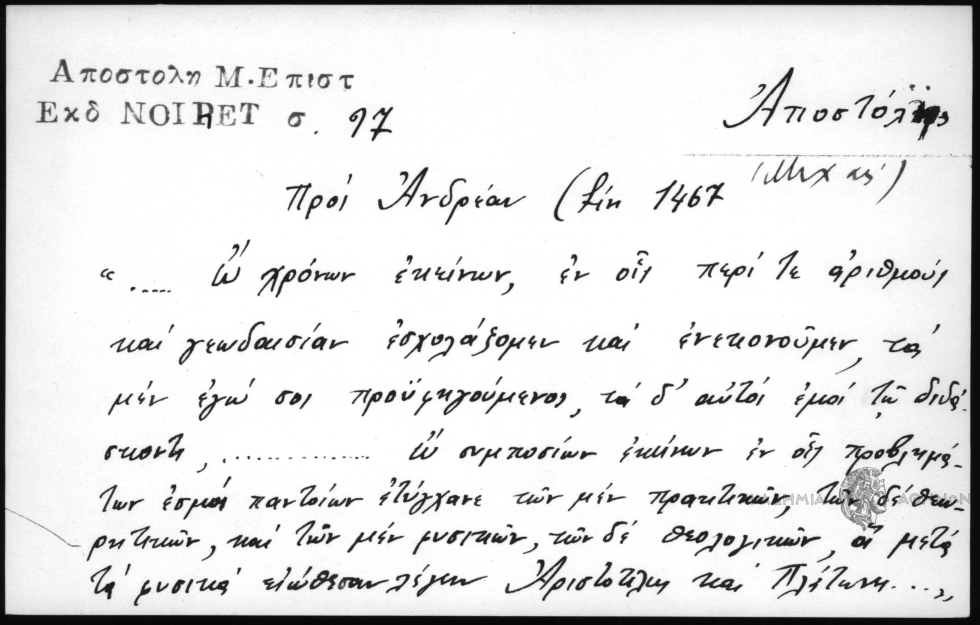 Αποστολη Μ. Επιστ
Εκδ NOIRET σ. 97
Ἀποστόλης
(Μιχ αή)
Πρὸς Ἀνδρέαν ( 1467
"..... Ὢ χρόνων ἐκείνων, ἐν οἷς περί τε ἀριθμοὺς
καὶ γεωδαισίαν ἐσχολάζομεν καὶ ἐνεκονοῦμεν, τὰ
μὲν ἐγώ σοι προϋφηγούμενος, τὰ δ' αὐτὸς ἐμοὶ τῷ διδά-
σκοντι, .............. Ὢ συμποσίων ἐκείνων ἐν οἷς προβλημά-
των ἐσμὸς παντοίων ἐτύγχανε τῶν μὲν πρακτικῶν, τῶν δὲ θεω-
ρητικῶν, καὶ τῶν μὲν φυσικῶν, τῶν δὲ θεολογικῶν, ἃ μετὰ
τὰ φυσικὰ εἰώθεσαν λέγειν Ἀριστοτέλης καὶ Πλάτων...„
ΑΘΗΝΩΝ